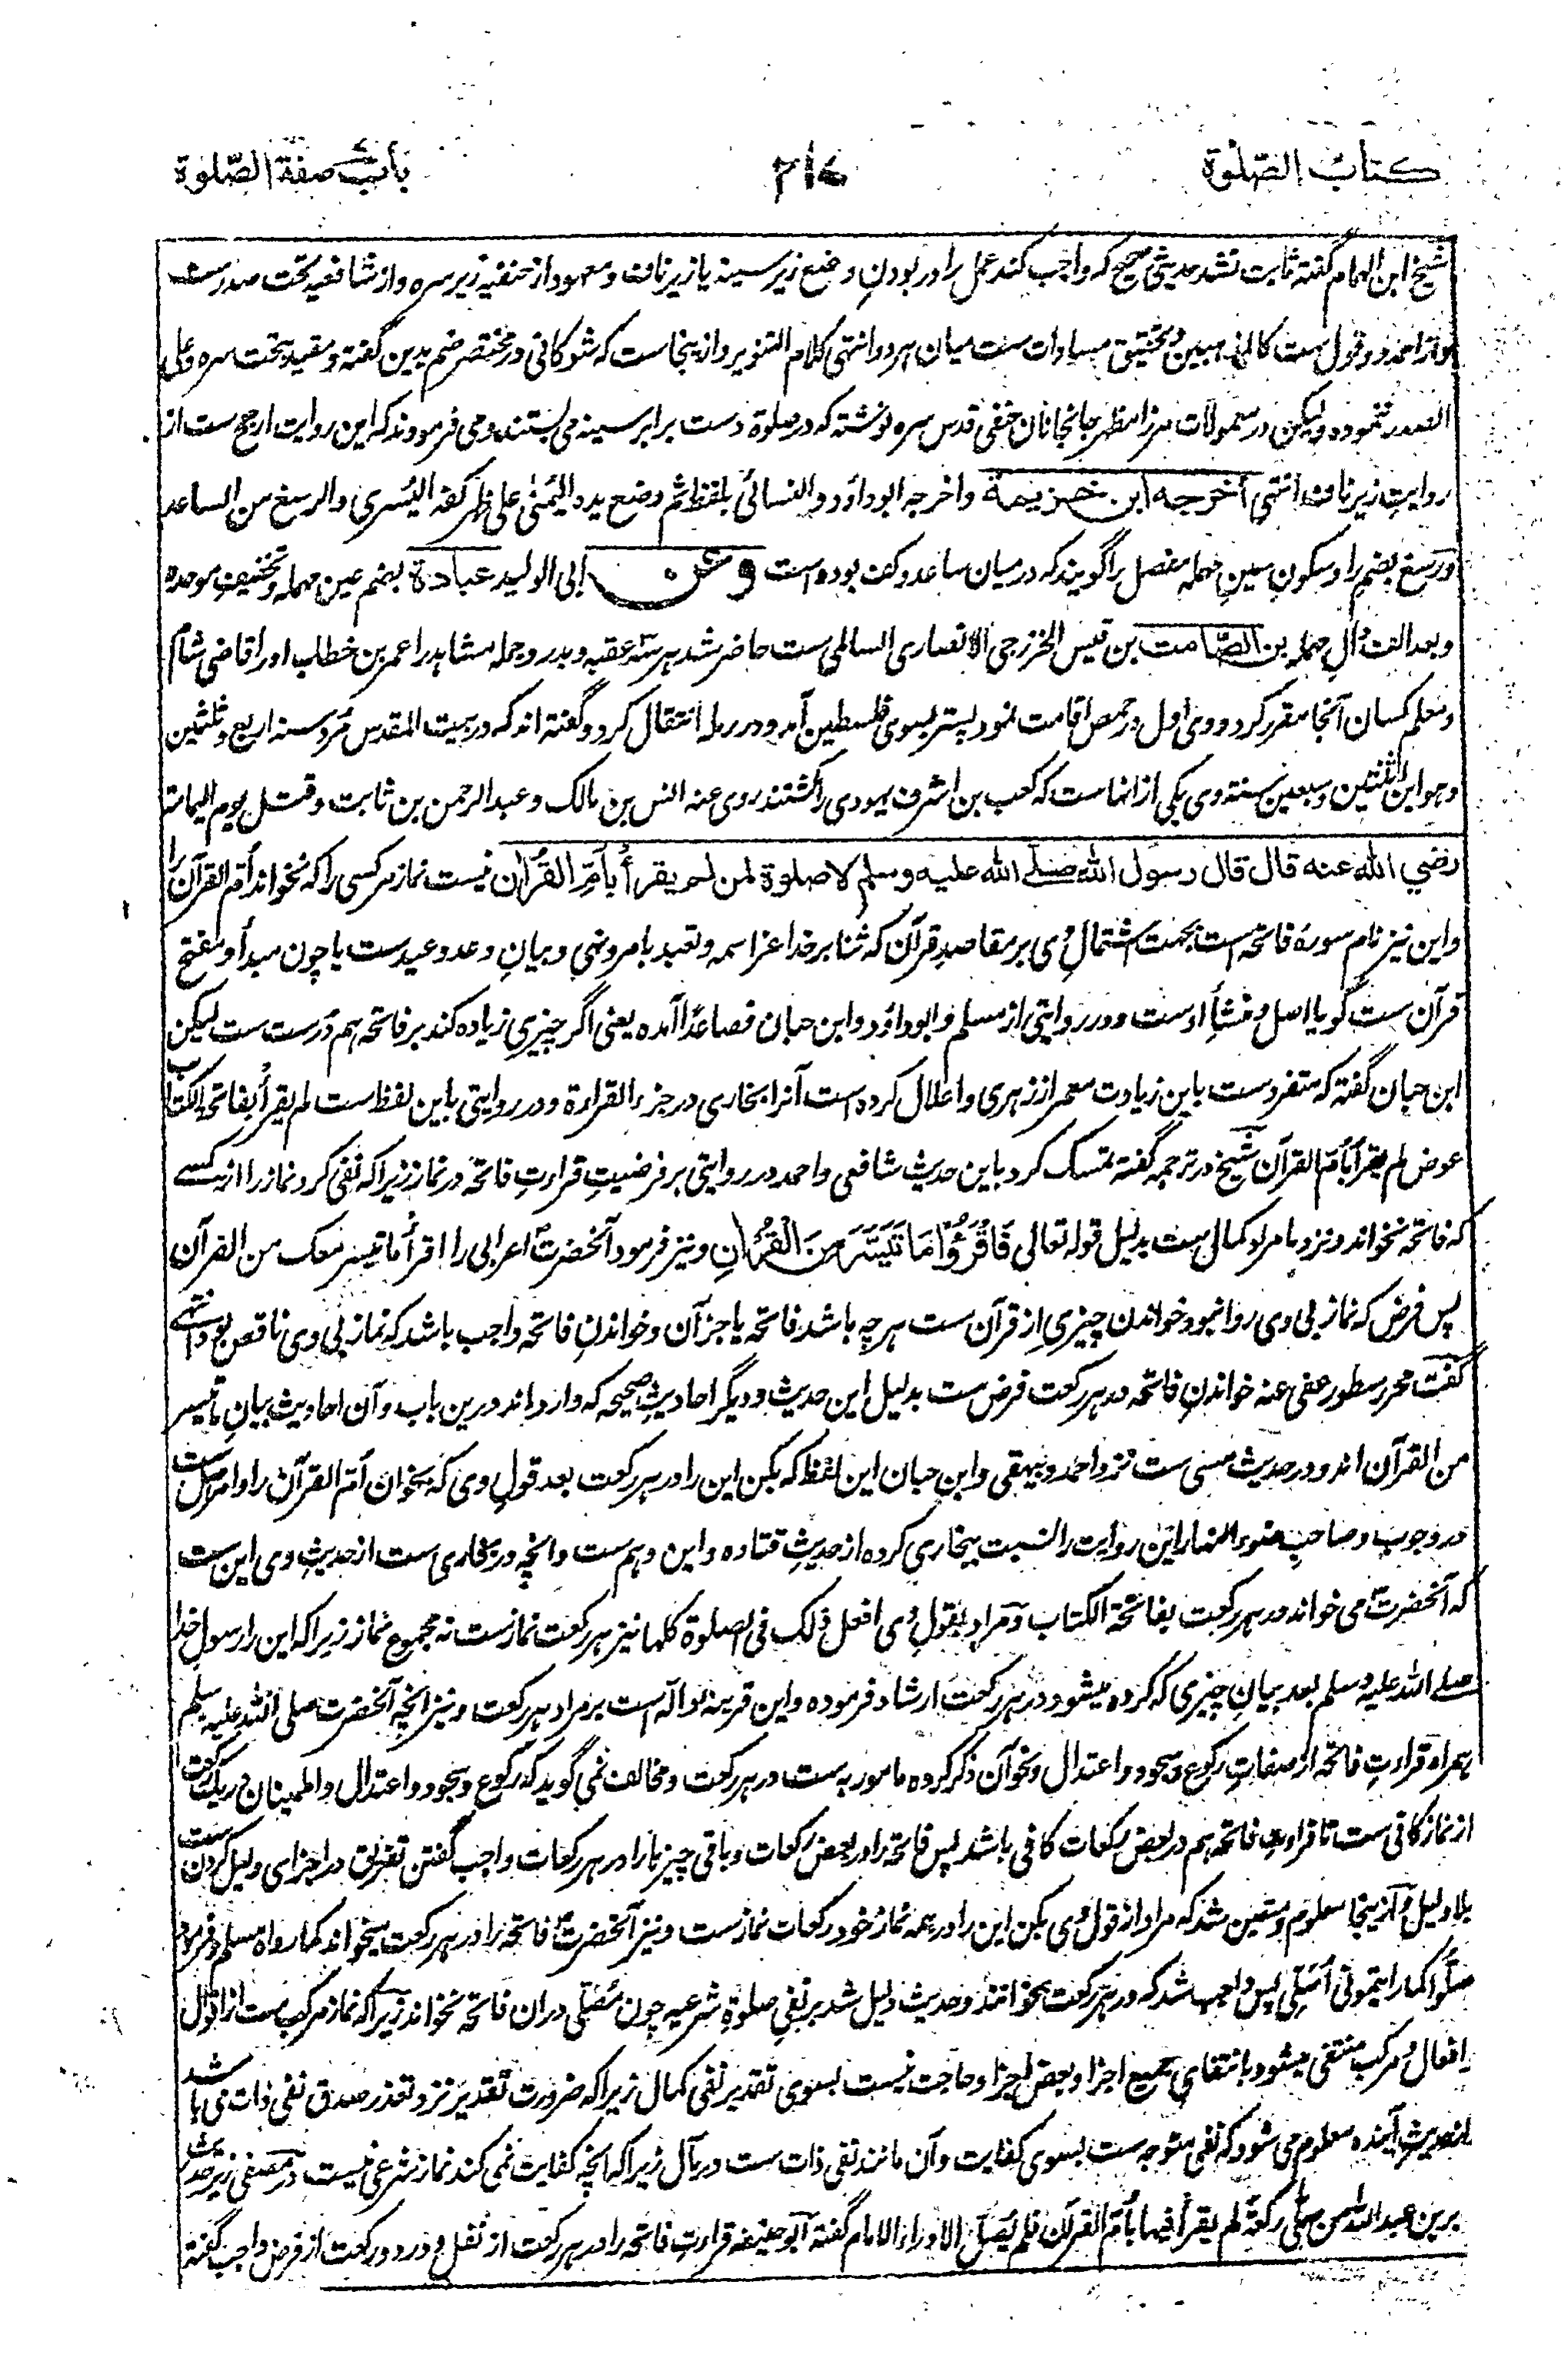 كتاب الصّلوة
٢١٤
باب صفة الصّلوة
شیخ ابن الہمام گفتہ ثابت نشد حدیثی صحیح کہ واجب کند عمل را در بودنِ وضع زیر سینہ یا زیر ناف و معہود از حنفیہ زیر سرہ و از شافعیہ تحت صدرست
و از احمد دو قول ست کالمذہبین و تحقیق مساوات ست میان ہر دو انتہی کلام التنویر و ازینجاست کہ شوکانی در مختصر ضم یدین گفتہ و مقید بتحت سرہ و علی
الصدر ننمودہ و لیکن در معمولات مرزا مظہر جانجانان حنفی قدس سرہ نوشتہ کہ در صلوة دست برابر سینہ می بستند و می فرمودند کہ این روایت ارجح ست از
روایتِ زیر ناف انتہی أخرجه ابن خزيمة و اخرجہ ابو داؤد و النسائی بلفظ ثم وضع یدہ الیُمنٰی علی ظہر کفہ الیُسری والرسغ من الساعد
و رسغ بضمِ را و سکونِ سینِ مہملہ مفصل را گویند کہ درمیان ساعد و کف بودہ است وعن ابی الولید عبادة بضم عین مہملہ و تخفیفِ موحدہ
و بعد الف دالِ مہملہ بن الصّامت بن قیس الخزرجی الانصاری السالمی ست حاضر شد ہر سہ عقبہ و بدر و جملہ مشاہد را عمر بن خطاب او را قاضی شام
و معلم کسان آنجا مقرر کرد و وی اول در حمص اقامت نمود پستر بسوی فلسطین آمد و در رملہ انتقال کرد و گفتہ اند کہ در بیت المقدس مُرد سنہ اربع و ثلثین
و ہو ابن اثنتین و سبعین سنتہ وی یکی از انہاست کہ کعب بن اشرف یہودی را کشتند روی عنہ انس بن مالک و عبد الرحمن بن ثابت و قتل یوم الیمامة
رضي الله عنه قال قال رسول الله صلى الله عليه وسلم لا صلوة لمن لم يقرأ بأمّ القرآن نیست نماز مر کسی را کہ نخواند اُم القرآن را
و این نیز نام سورۂ فاتحہ است بجہت اشتمالِ وی بر مقاصدِ قرآن کہ ثنا بر خدا عز اسمہ و تعبد بامر و نہی و بیانِ وعد و عیدست یا چون مبدأ و مفتح
قرآن ست گویا اصل و منشأ اوست و در روایتی از مسلم و ابو داؤد و ابن حبان فصاعدًا آمدہ یعنی اگر چیزی زیادہ کند بر فاتحہ ہم درست ست لیکن
ابن حبان گفتہ کہ متفردست باین زیادت معمر از زہری و اعلال کردہ است آنرا بخاری در جزء القراءة و در روایتی باین لفظ ست لم یقرأ بفاتحة الکتاب
عوض لم یقرأ بأم القرآن شیخ در ترجمہ گفتہ تمسک کرد باین حدیث شافعی و احمد در روایتی بر فرضیتِ قراءتِ فاتحہ در نماز زیرا کہ نفی کرد نماز را از کسے
کہ فاتحہ نخواند و نزد ما مراد کمال ست بدلیل قولہ تعالی فَاقْرَءُوْا مَا تَيَسَّرَ مِنَ الْقُرْاٰنِ و نیز فرمود آنحضرتؐ اعرابی را اقرأ ما تیسر معک من القرآن
پس فرض کہ نماز بی وی روا نبود خواندن چیزی از قرآن ست ہرچہ باشد فاتحہ یا جز آن و خواندنِ فاتحہ واجب باشد کہ نماز بی وی ناقص بود انتہے
گفت محرر سطور عفی عنہ خواندنِ فاتحہ در ہر رکعت فرض ست بدلیل این حدیث و دیگر احادیثِ صحیحہ کہ وارد اند درین باب و آن احادیث بیانِ ما تیسر
من القرآن اند و در حدیث مسیٔ ست نزد احمد و بیہقی و ابن حبان این لفظ کہ بکن این را در ہر رکعت بعد قولِ وی کہ بخوان اُم القرآن را و امر اصل ست
در وجوب و صاحبِ ضوء النہار این روایت را نسبت ببخاری کردہ از حدیثِ قتادہ و این وہم ست و آنچہ در بخاری ست از حدیثِ وی این ست
کہ آنحضرتؐ می خواند در ہر رکعت بفاتحة الکتاب و مراد بقولِ وی افعل ذٰلک فی الصلوة کلہا نیز ہر رکعت نمازست نہ مجموع نماز زیرا کہ این را رسولِ خدا
صلے اللہ علیہ و سلم بعد بیانِ چیزی کہ کردہ میشود در ہر رکعت ارشاد فرمودہ و این قرینہ دالہ است بر مراد ہر رکعت و نیز آنچہ آنحضرت صلی اللہ علیہ و سلم
ہمراہِ قراءتِ فاتحہ از صفاتِ رکوع و سجود و اعتدال و نحو آن ذکر کردہ مامور بہ ست در ہر رکعت و مخالف نمی گوید کہ رکوع و سجود و اعتدال و اطمینان در یک رکعت
از نماز کافی ست تا قراءتِ فاتحہ ہم در بعض رکعات کافی باشد پس فاتحہ را در بعض رکعات و باقی چیزہا را در ہر رکعات واجب گفتن تفریق در اجزای دلیل کردن ست
بلا دلیل و ازینجا معلوم و متعین شد کہ مراد از قول وی بکن این را در ہمہ نماز خود رکعات نمازست و نیز آنحضرتؐ فاتحہ را در ہر رکعت میخواند کما رواہ مسلم و فرمود
صلّوا کما رایتمونی اُصَلّی پس واجب شد کہ در ہر رکعت بخوانند و حدیث دلیل شد بر نفیِ صلوةِ شرعیہ چون مُصَلّی دران فاتحہ نخواند زیرا کہ نماز مرکب ست از اقوال
و افعال و مرکب منتفی میشود بانتفای جمیع اجزا و بعض اجزا و حاجت نیست بسوی تقدیرِ نفی کمال زیرا کہ ضرورت تقدیر نزد تعذرِ صدق نفی ذات می باشد
از حدیث آیندہ معلوم می شود کہ نفی متوجہ ست بسوی کفایت و آن مانند نفی ذات ست در مآل زیرا کہ آنچہ کفایت نمی کند نماز شرعی نیست در مصفی زیر حدیث
بر بن عبد اللہ من صلّٰی رکعة لم یقرأ فیہا بأم القرآن فلم یُصَلّ الا وراء الامام گفتہ ابو حنیفہ قراءتِ فاتحہ را در ہر رکعت از نفل و در دو رکعت از فرض واجب گفتہ